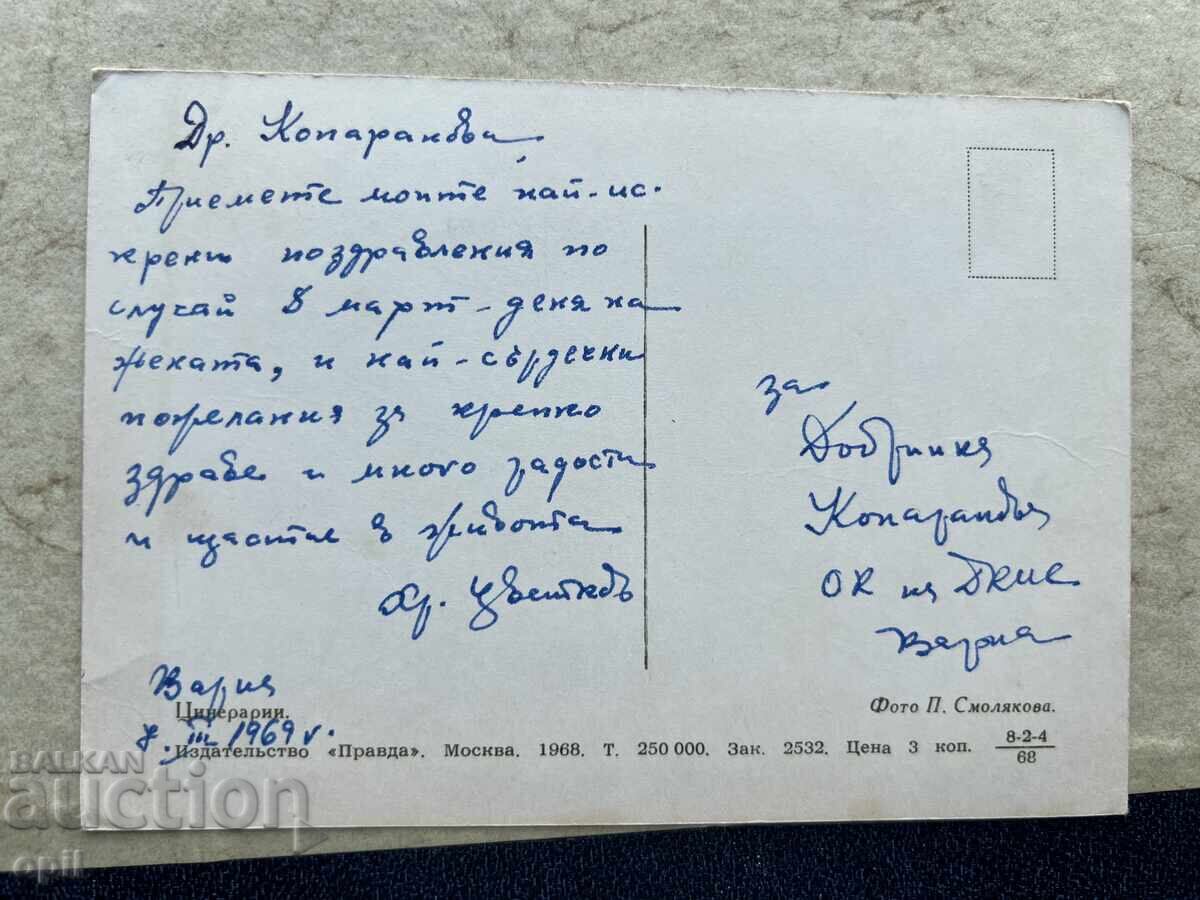 Др. Копаранова
Приемете моите най-ис-
крени поздравления по
случай 8 март - деня на
жената, и най-сърдечни
пожелания за крепко
здраве и много радости
и щастие в живота
Хр. Цветков
Варна
7. III 1969 г.
за
Добринка
Копаранова
ОК на БКП
Варна
Цинерарии.
Фото П. Смолякова.
Издательство «Правда». Москва. 1968. Т. 250 000. Зак. 2532. Цена 3 коп. 8-2-4
68
BALKAN
auction
opil